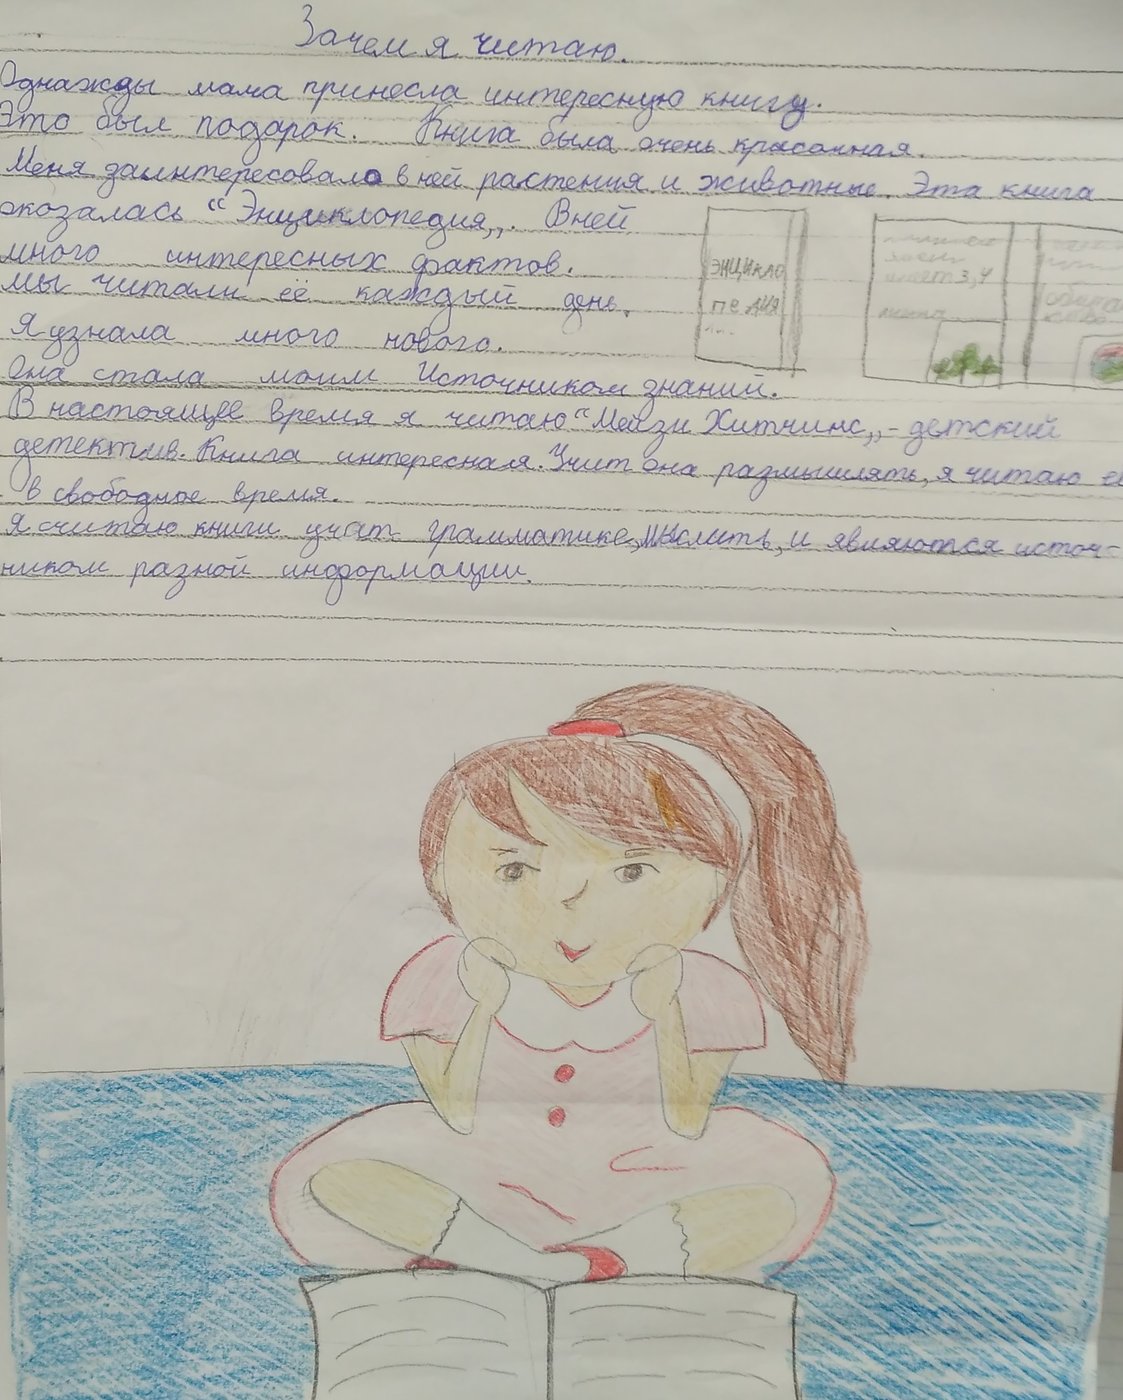 Зачем я читаю.
Однажды мама принесла интересную книгу.
Это был подарок. Книга была очень красочная.
Меня заинтересовало в ней растения и животные. Эта книга
оказалась “Энциклопедия„. Вней
много интересных фактов.
мы читали её каждый день.
Я узнала много нового.
Она стала моим Источником знаний.
В настоящее время я читаю “Мейзи Хитчинс„ - детский
детектив. Книга интересная. Учит она размышлять, я читаю её
в свободное время.
Я считаю книги учат грамматике, мыслить, и являются источ-
ником разной информации.
ЭНЦИКЛО
ПЕДИЯ